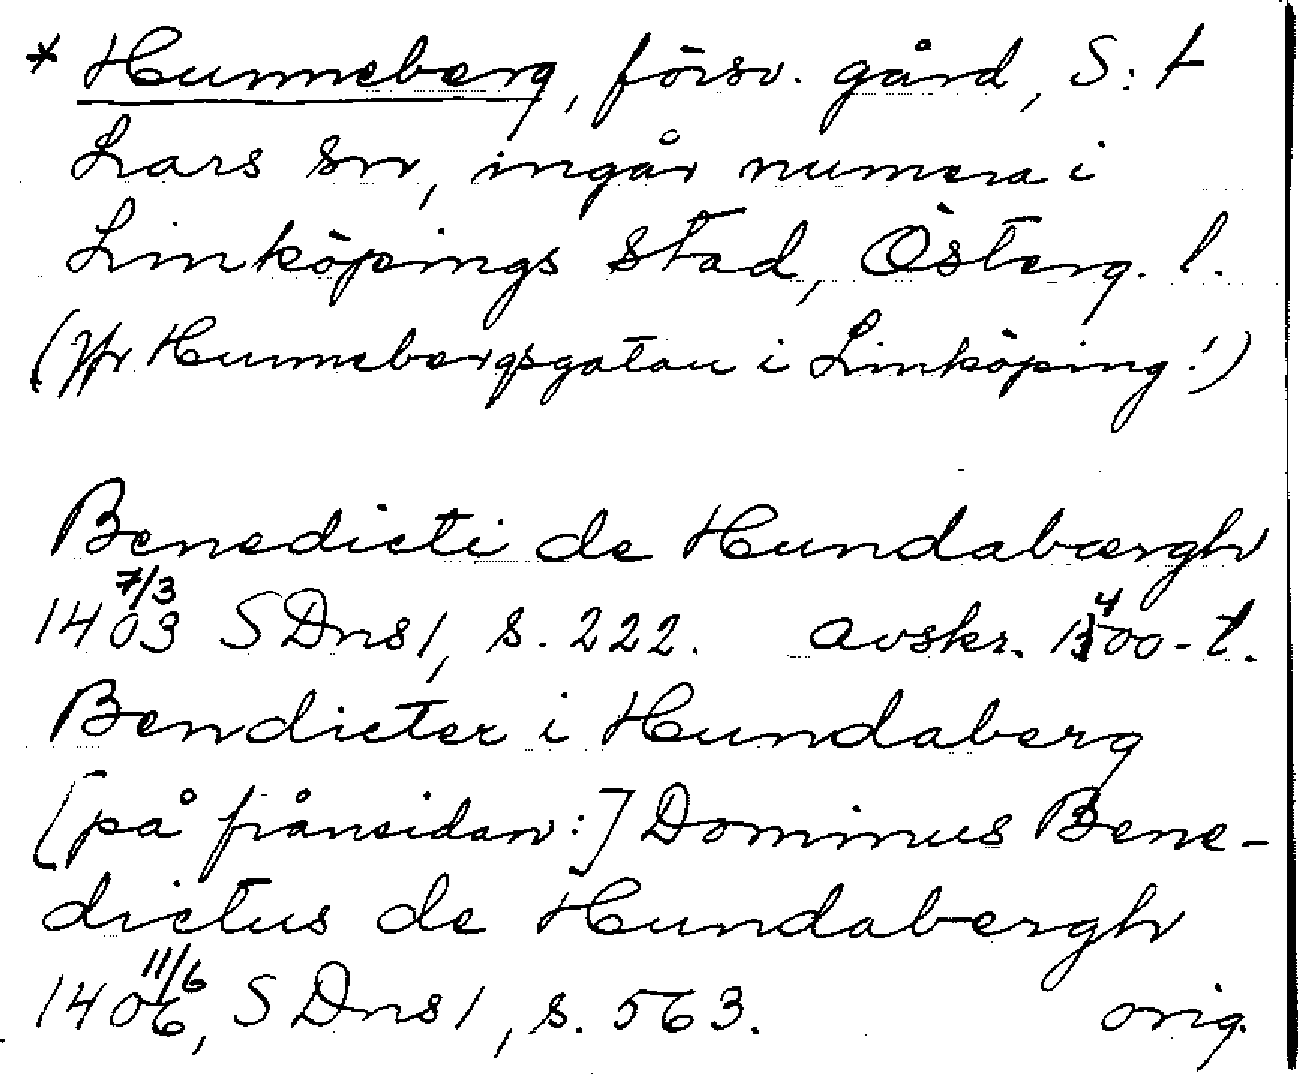 * Hunneberg, försv. gård, S:t
Lars sn, ingår numera i
Linköpings stad, Österg. l.
(Jfr Hunnebergsgatan i Linköping!)
Benedicti de Hundabærgh
7/3
1403 SDns1, s. 222. avskr. 1400-t.
Bendicter i Hundaberg
[på frånsidan:] Dominus Bene-
dictus de Hundabergh
11/6
1406, SDns1, s. 563. orig.